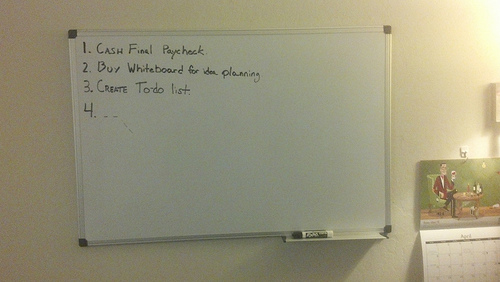 1. CASH Final Paycheck.
2. Buy Whiteboard for idea planning
3. CREATE To-do list.
4. _ _
April